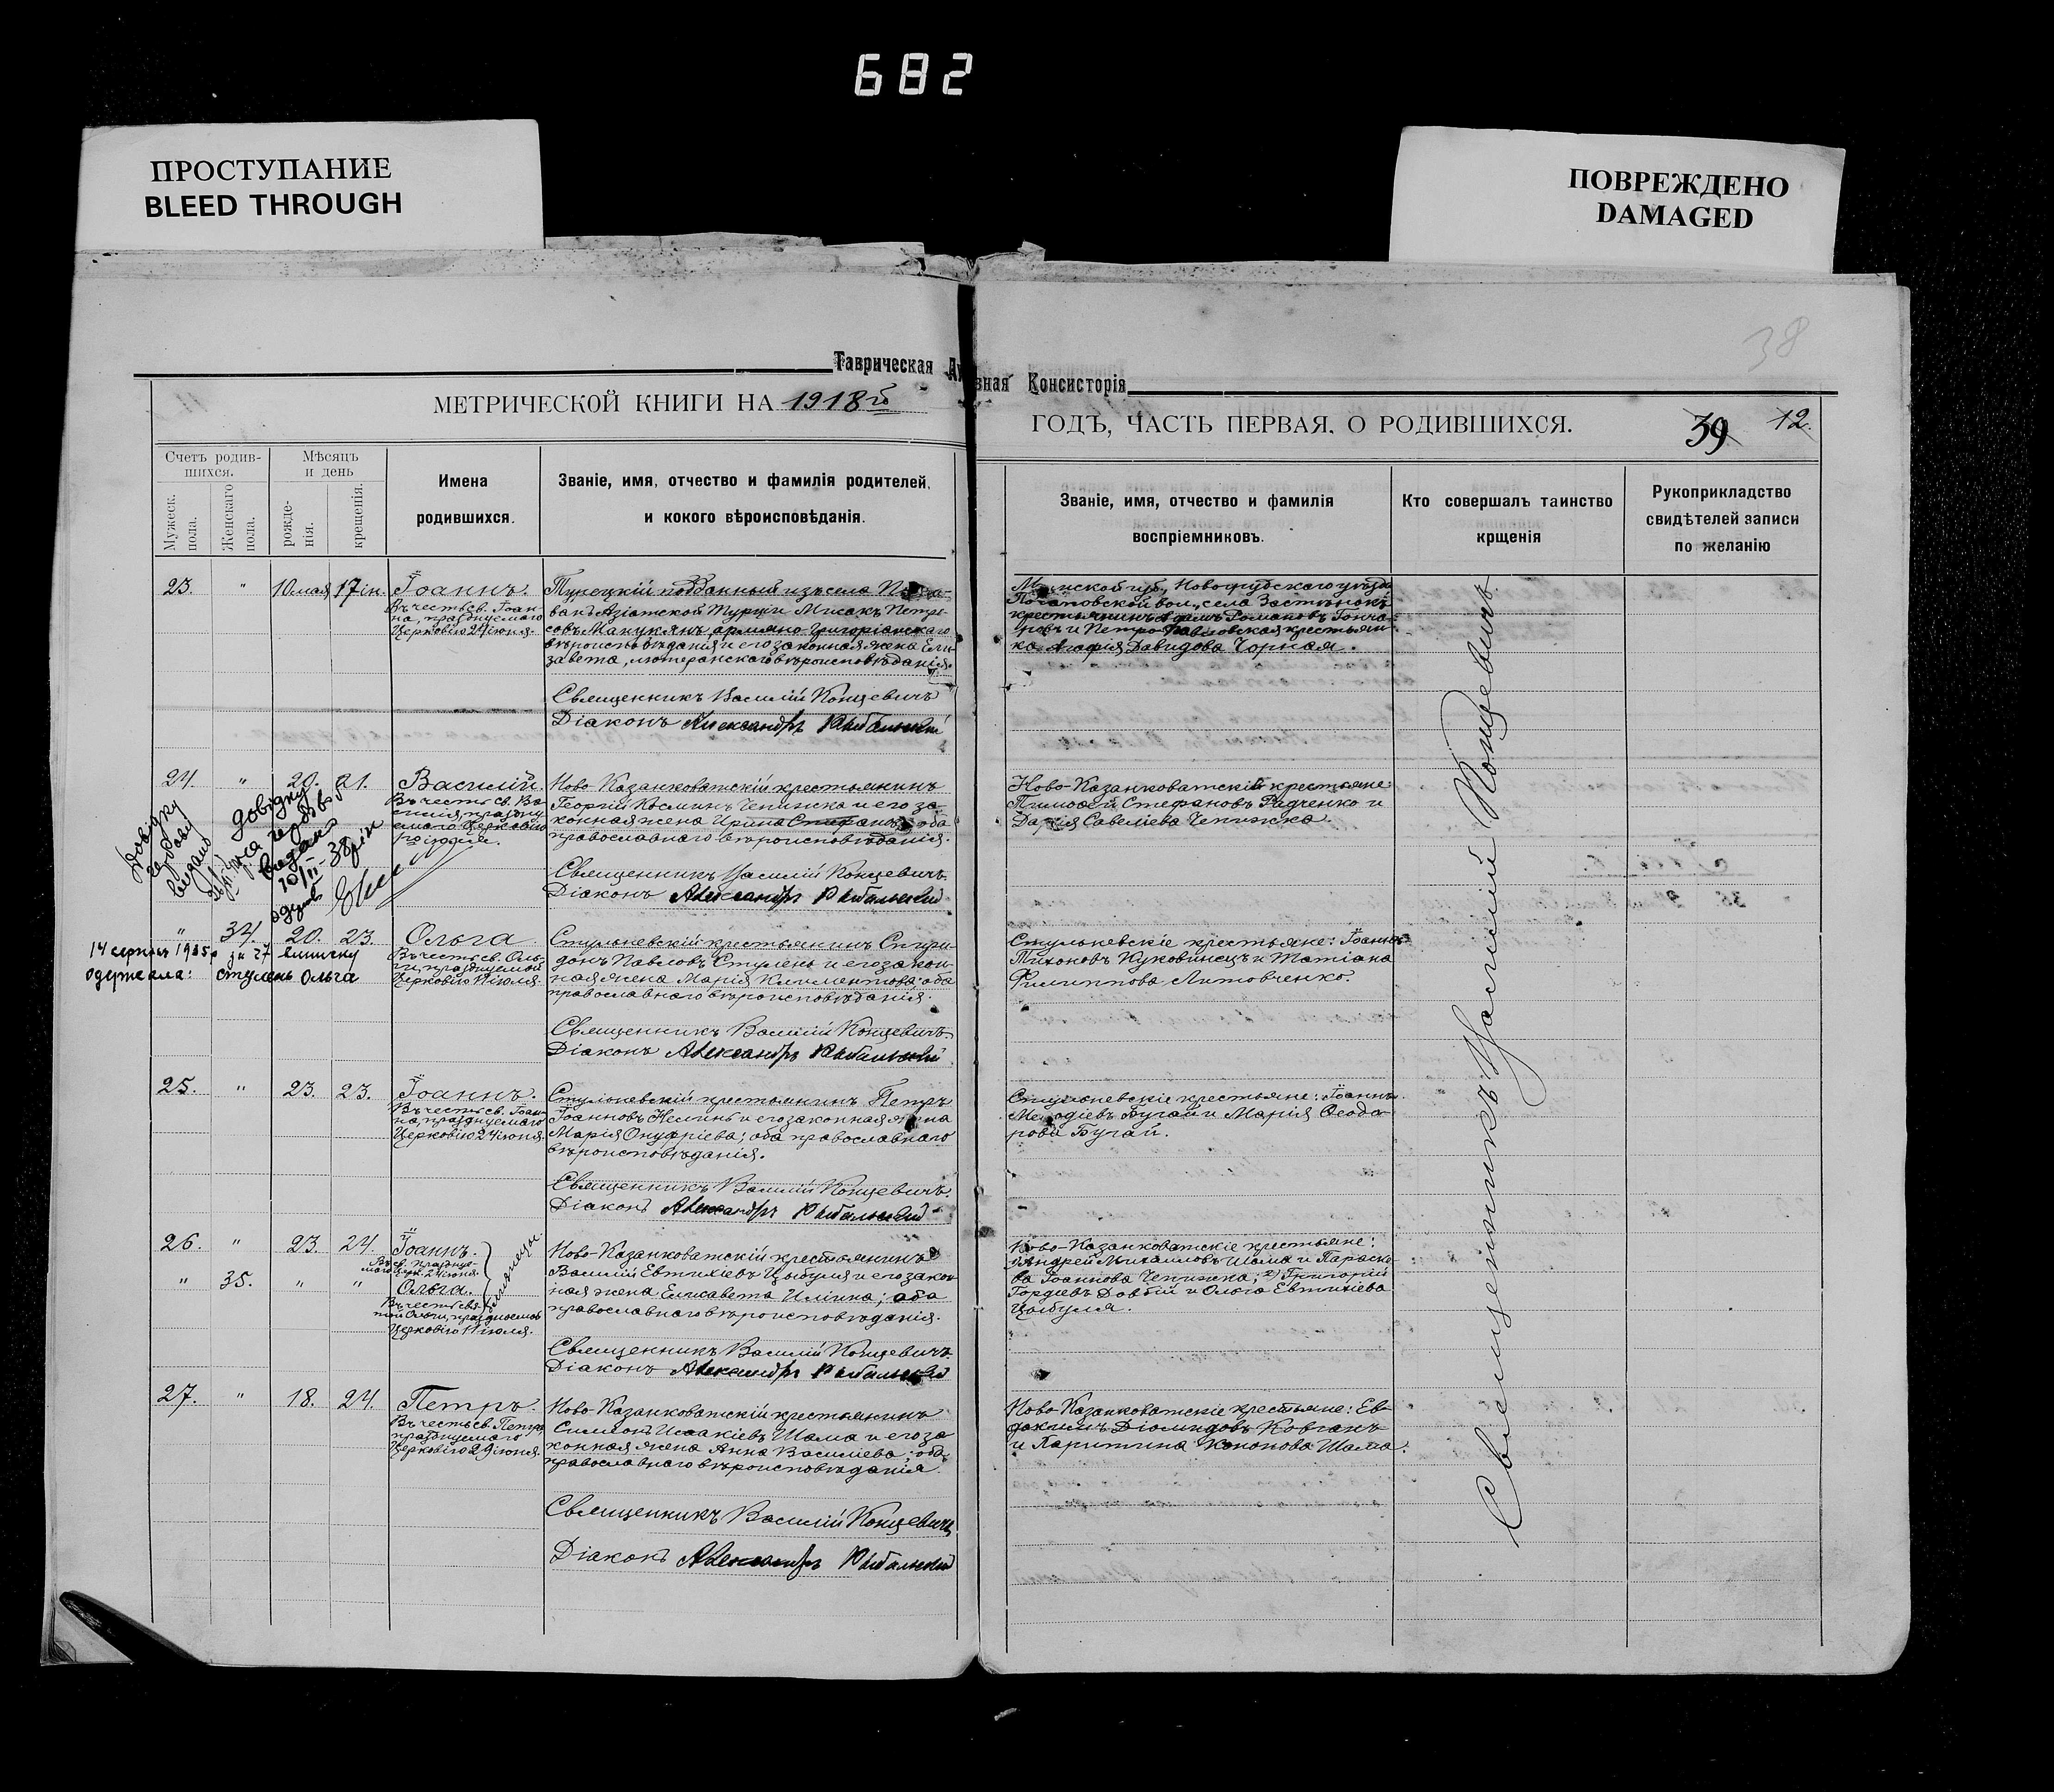 682
ПРОСТУПАНИЕ
BLEED THROUGH
ПОВРЕЖДЕНО
DAMAGED
38
Таврическая Ду
вная Консисторія
МЕТРИЧЕСКОЙ КНИГИ НА 1918й
ГОДЪ, ЧАСТЬ ПЕРВАЯ, О РОДИВШИХСЯ.
39 12.
Счетъ родив-
шихся.
Мужеск.
пола.
Женскаго
пола.
Мѣсяцъ
и день
рожде-
нія.
крещенія.
Имена
родившихся.
Званіе, имя, отчество и фамилія родителей,
и кокого вѣроисповѣданія.
Званіе, имя, отчество и фамилія
воспріемниковъ.
Кто совершалъ таинство
крщенія
Рукоприкладство
свидѣтелей записи
по желанію
23. " 10 мая 17 ін. Іоаннъ.
Въ честь св. Іоан-
на, празднуемаго
Церковію 24 іюня.
Турецкій подданный изъ села
вакъ Азіатской Турціи Мисакъ Петро-
совъ Макукянъ, армяно-григоріанскаго
вѣроисповѣданія и его законная жена Ели-
завета, лютеранскаго вѣроисповѣданія.
Священникъ Василій Концевичъ
Діаконъ Александръ Рыбальскій
губ., Новогрудскаго уѣзда
Почаповской вол., села Застѣнокъ
крестьянинъ Адамъ Романовъ Гонча-
ровъ и Петро-Павловская крестьян-
ка Агафія Давидова Чорная.
24. " 20. 21. Василій.
Въ честь св. Ва-
силія, праздну
емаго Церковію
Ново-Казанковатскій крестьянинъ
Георгій Косминъ Чепижка и его за-
конная жена Ирина Стефанова; оба
православнаго вѣроисповѣданія.
Священникъ Василій Концевичъ.
Діаконъ Александръ Рыбальскій
Ново-Казанковатскій крестьяне:
Тимофей Стефановъ Радченко и
Дарія Савеліева Чепижка.
довідку
видано
довідку
видано
10/II-38 рік
" 34. 20. 23. Ольга.
Въ честь св. Оль-
ги, празднуемой
Церковію 11 іюля.
14 серпня 1935 р за 27 виписку
одержала: Стулень Ольга
Стульневскій крестьянинъ Спири-
донъ Павловъ Стулень и его закон-
ная жена Марія Климентова; оба
православнаго вѣроисповѣданія.
Священникъ Василій Концевичъ.
Діаконъ Александръ Рыбальскій
Стульневскіе крестьяне: Іоаннъ
Тихоновъ Куковинецъ и Татіана
Филиппова Литовченко.
25. " 23. 23. Іоаннъ.
Въ честь св. Іоан-
на, празднуемаго
Церковію 24 іюня.
Стульневскій крестьянинъ Петръ
Іоанновъ и его законная жена
Марія Онуфріева; оба православнаго
вѣроисповѣданія.
Священникъ Василій Концевичъ.
Діаконъ Александръ Рыбальскій
Стульневскіе крестьяне: Іоаннъ
Мефодіевъ Бугай и Марія Феодо-
рова Бугай.
26. " 23. 24. Іоаннъ.
Въ св. празднуе-
маго Церк. 24 іюня.
" 35. " " Ольга.
Въ честь свя-
той Ольги, празднуемой
Церковію 11 іюля.
близнецы.
Ново-Казанковатскій крестьянинъ
Василій Евтихіевъ Цыбуля и его закон
ная жена Елисавета Иліина; оба
православнаго вѣроисповѣданія.
Священникъ Василій Концевичъ
Діаконъ Александръ Рыбальскій
Ново-Казанковатскіе крестьяне:
Андрей Михаиловъ Шама и Параске-
ва Іоаннова Чепижка; 2) Григорій
Гордіевъ Довбій и Ольга Евтихіева
Цыбуля.
27. " 18. 24. Петръ.
Въ честь св. Петра,
празднуемаго
Церковію 29 іюня.
Ново-Казанковатскій крестьянинъ
Симеонъ Исаакіевъ Шама и его за
конная жена Анна Василіева; оба
православнаго вѣроисповѣданія.
Священникъ Василій Концевичъ
Діаконъ Александръ Рыбальскій
Ново-Казанковатскіе крестьяне: Ев-
докимъ Діомидовъ Ковганъ
и Харитина Кононова Шама.
Священникъ Василій Концевичъ